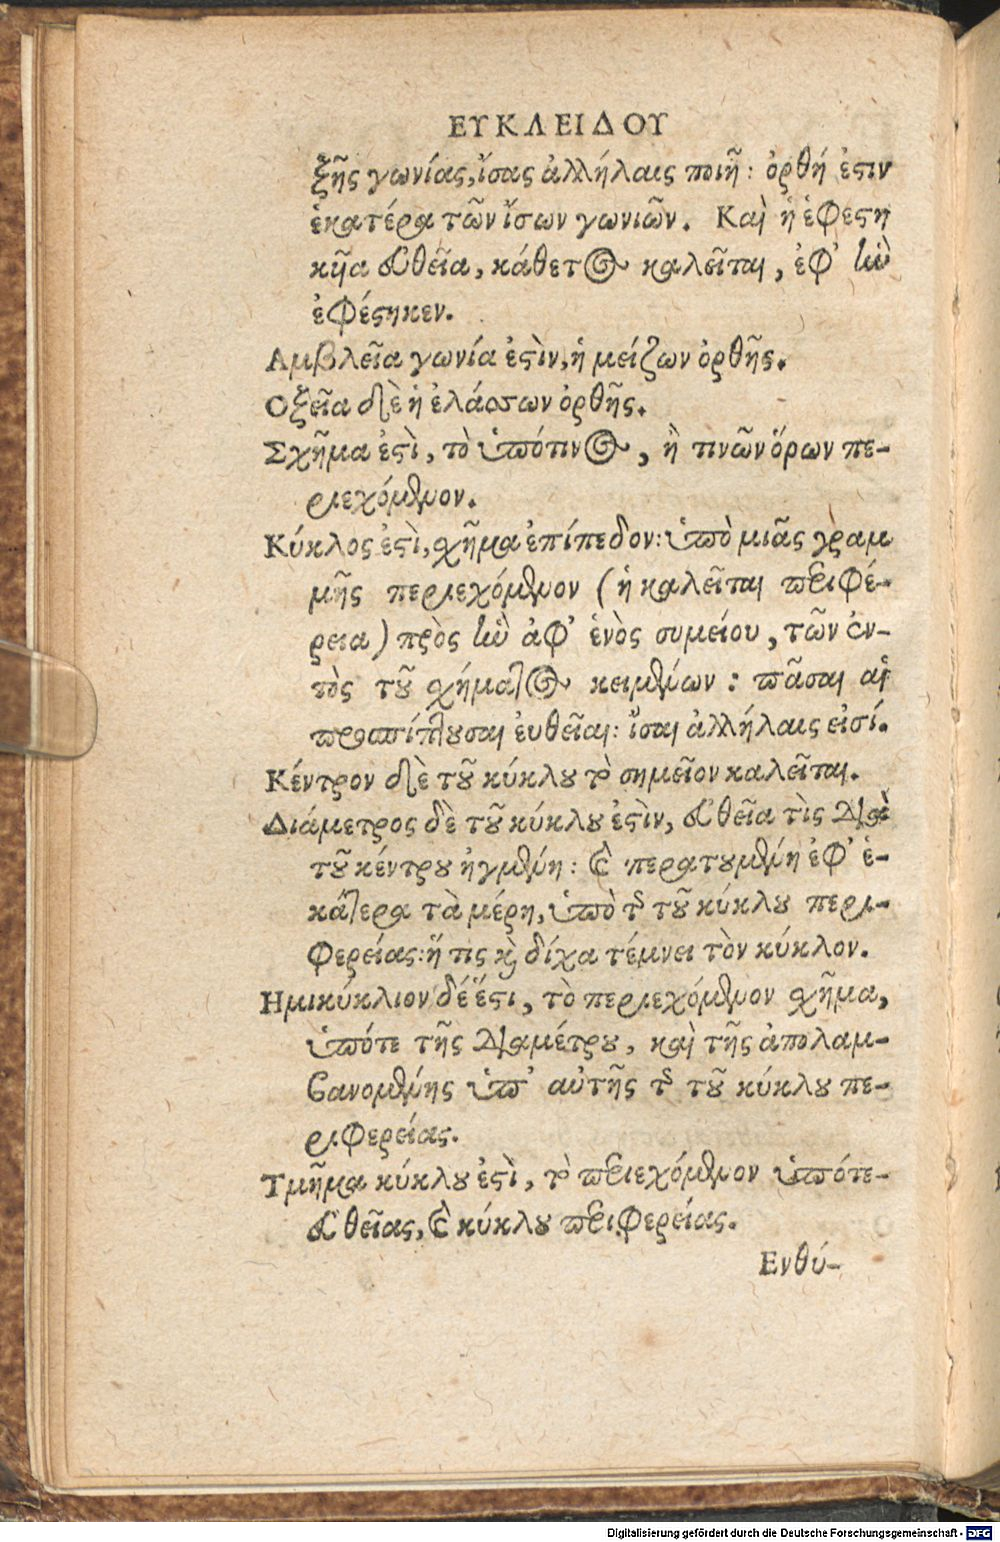 ΕΥΚΛΕΙΔΟΥ
ξῆς γωνίας, ἴσας ἀλλήλαις ποιῇ: ὀρθή ἐστιν
ἑκατέρα τῶν ἴσων γωνιῶν. Καὶ ἡ ἐφεστη
κῆα εὐθεῖα, κάθετος καλεῖται, ἐφ’ ἣν
ἐφέστηκεν.
Αμβλεῖα γωνία ἐστὶν, ἡ μείζων ὀρθῆς.
Οξεῖα δὲ ἡ ἐλάσσων ὀρθῆς.
Σχῆμα ἐστὶ, τὸ ὑπότινος, ἤ τινῶν ὅρων πε-
ριεχόμενον.
Κύκλος ἐστὶ, σχῆμα ἐπίπεδον: ὑπὸ μιᾶς γραμ
μῆς περιεχόμενον (ἡ καλεῖται περιφέ-
ρεια) πρὸς ἣν ἀφ’ ἑνὸς συμείου, τῶν ἐν-
τὸς τοῦ σχήματος κειμένων: πᾶσαι αἱ
προσπίπτουσαι ἐυθεῖαι: ἴσαι ἀλλήλαις εἰσί.
Κέντρον δὲ τοῦ κύκλου τὸ σημεῖον καλεῖται.
Διάμετρος δὲ τοῦ κύκλου ἐστὶν, εὐθεῖα τὶς διὰ
τοῦ κέντρου ἠγμένη: καὶ περατουμένη ἐφ’ ἑ-
κάτερα τὰ μέρη, ὑπὸ τῆς τοῦ κύκλου περι-
φερείας: ἥ τις καὶ δίχα τέμνει τὸν κύκλον.
Ημικύκλιον δέ ἔστι, τὸ περιεχόμενον σχῆμα,
ὑπότε τῆς διαμέτρου, καὶ τῆς ἀπολαμ-
βανομένης ὑπ’ αὐτῆς τῆς τοῦ κύκλου πε-
ριφερείας.
Τμῆμα κύκλου ἐστὶ, τὸ περιεχόμενον ὑπότε-
εὐθείας, καὶ κύκλου περιφερείας.
Ενθύ-
Digitalisierung gefördert durch die Deutsche Forschungsgemeinschaft - DFG